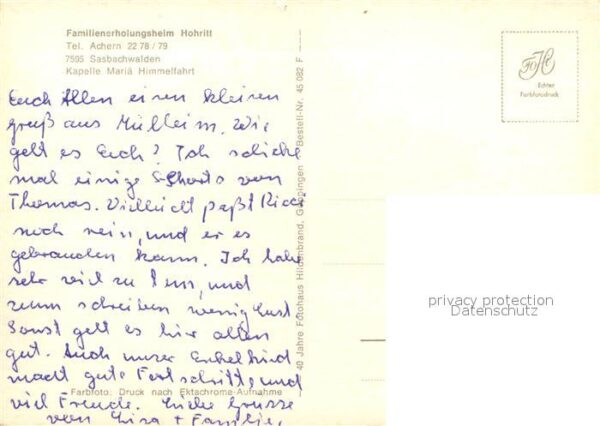 Familienerholungsheim Hohritt
Tel. Achern 22 78 / 79
7595 Sasbachwalden
Kapelle Mariä Himmelfahrt
Euch Allen einen kleinen
gruß aus Müllheim. Wie
geht es Euch? Ich schicke
mal einige Shorts von
Thomas. Vielleicht paßt
noch rein, und er es
gebrauchen kann. Ich habe
sehr viel zu tun, und
zum schreiben wenig Lust.
Sonst geht es hier allen
gut. Auch unser Enkelkind
macht gute Fortschritte und
viel Freude. Liebe Grüsse
von Lisa + Familie.
Farbfoto: Druck nach Ektachrome-Aufnahme
40 Jahre Fotohaus Hildenbrand, Göppingen Bestell-Nr. 45 082 F
FoHi
Echter
Farbfotodruck
privacy protection
Datenschutz